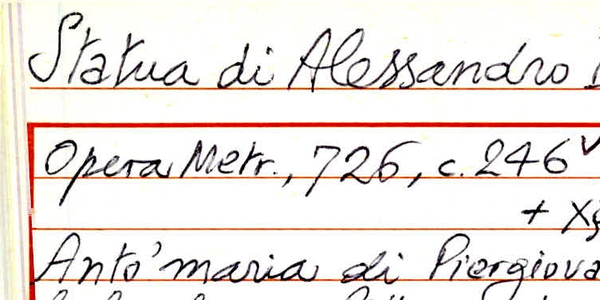 Statua di Alessandro
Opera Metr., 726, c. 246v
+
Anto'maria di Piergiova